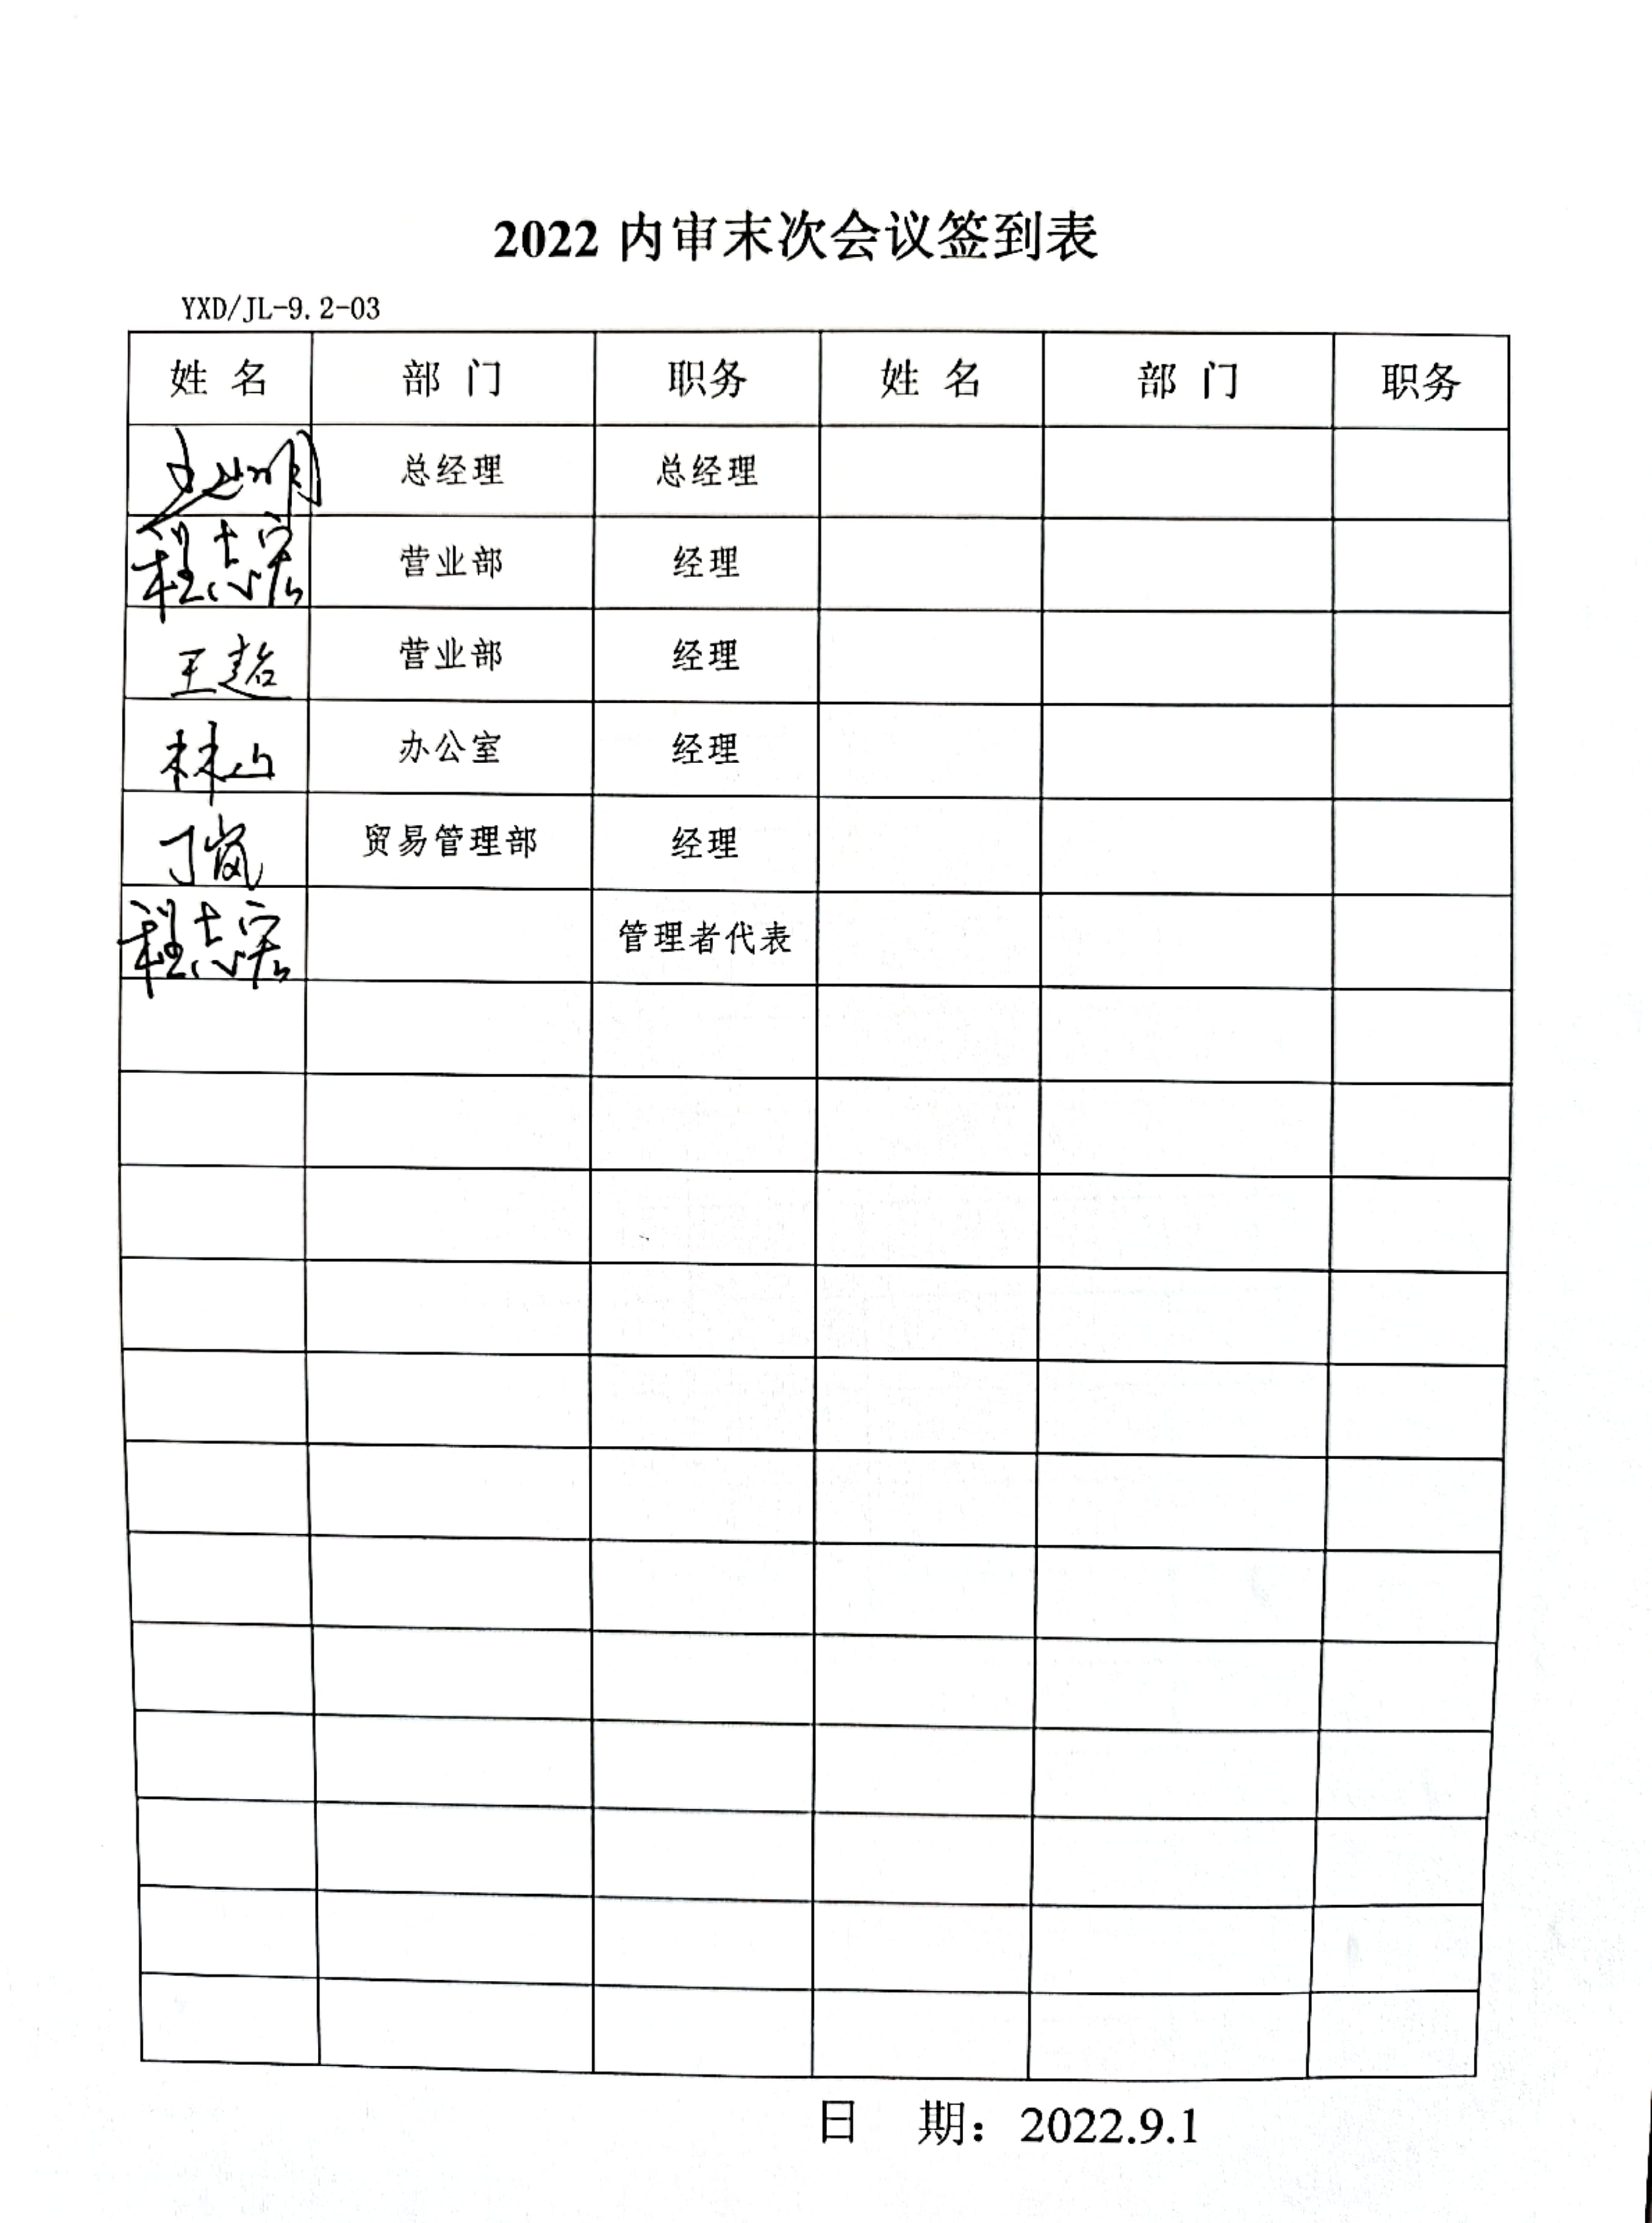 2022 内审末次会议签到表
YXD/JL-9.2-03
姓 名 部 门 职务 姓 名 部 门 职务
总经理 总经理
程志宏 营业部 经理
王超 营业部 经理
林山 办公室 经理
丁岚 贸易管理部 经理
程志宏 管理者代表
日 期：2022.9.1